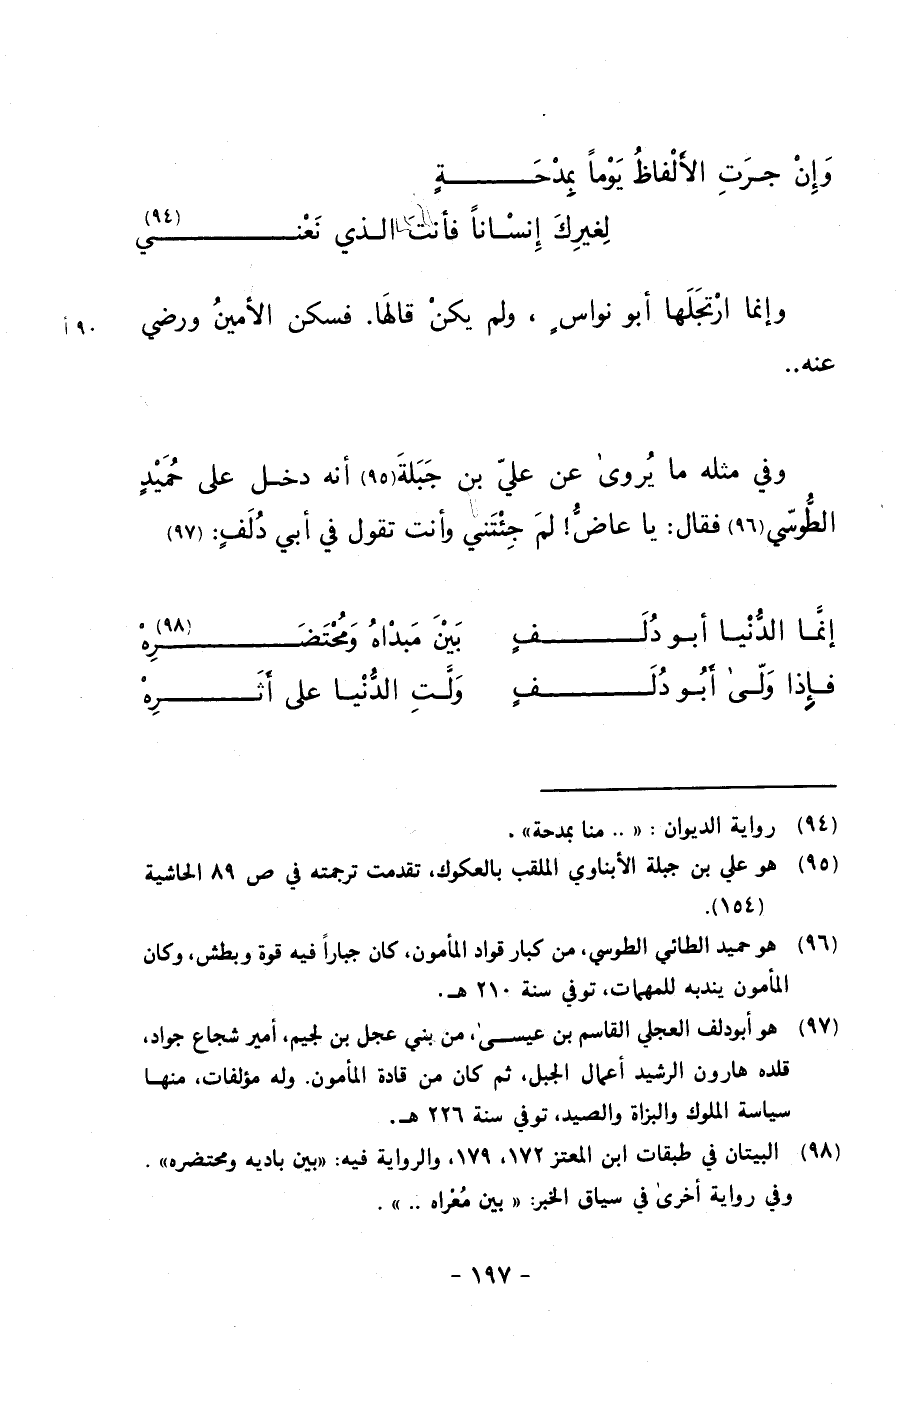 وَإِنْ جـرَتِ الأَلْفاظُ يَوْماً بِمِدْحَـــــــــةٍ
لِغيرِكَ إِنسْـاناً فأنتَ الـذي نَعْنــــــــــي (٩٤)
وإنما ارْتجَلَها أبو نواسٍ ، ولم يكنْ قالهَا. فسكن الأمينُ ورضي
٩٠ أ
عنه..
وفي مثله ما يُروىٰ عن عليّ بن جَبَلةَ(٩٥) أنه دخـل على حُمَيْدٍ
الطُّوسّي(٩٦) فقال: يا عاضُّ! لمَ جِئْتَني وأنت تقول في أبي دُلَفٍ: (٩٧)
إنَّمـا الدُّنْيـا أبـو دُلَـــــــــفٍ بَيْنَ مَبدْاهُ وَمُحْتَضَـــــــــرِهْ (٩٨)
فـإِذا وَلّـىٰ أَبُـو دُلَـــــــــفٍ وَلَّـتِ الدُّنْيـا على أَثَـــــــــرِهْ
(٩٤) رواية الديوان : « .. منا بمدحة» .
(٩٥) هو علي بن جبلة الأبناوي الملقب بالعكوك، تقدمت ترجمته في ص ٨٩ الحاشية
(١٥٤).
(٩٦) هو حميد الطائي الطوسي، من كبار قواد المأمون، كان جباراً فيه قوة وبطش، وكان
المأمون يندبه للمهمات، توفي سنة ٢١٠ هـ.
(٩٧) هو أبودلف العجلي القاسم بن عيســىٰ، من بني عجل بن لجيم، أمير شجاع جواد،
قلده هارون الرشيد أعمال الجبل، ثم كان من قادة المأمون. وله مؤلفات، منهـا
سياسة الملوك والبزاة والصيد، توفي سنة ٢٢٦ هـ.
(٩٨) البيتان في طبقات ابن المعتز ١٧٢، ١٧٩، والرواية فيه: «بين باديه ومحتضره» .
وفي رواية أخرىٰ في سياق الخبر: « بين مغْراه .. » .
- ١٩٧ -